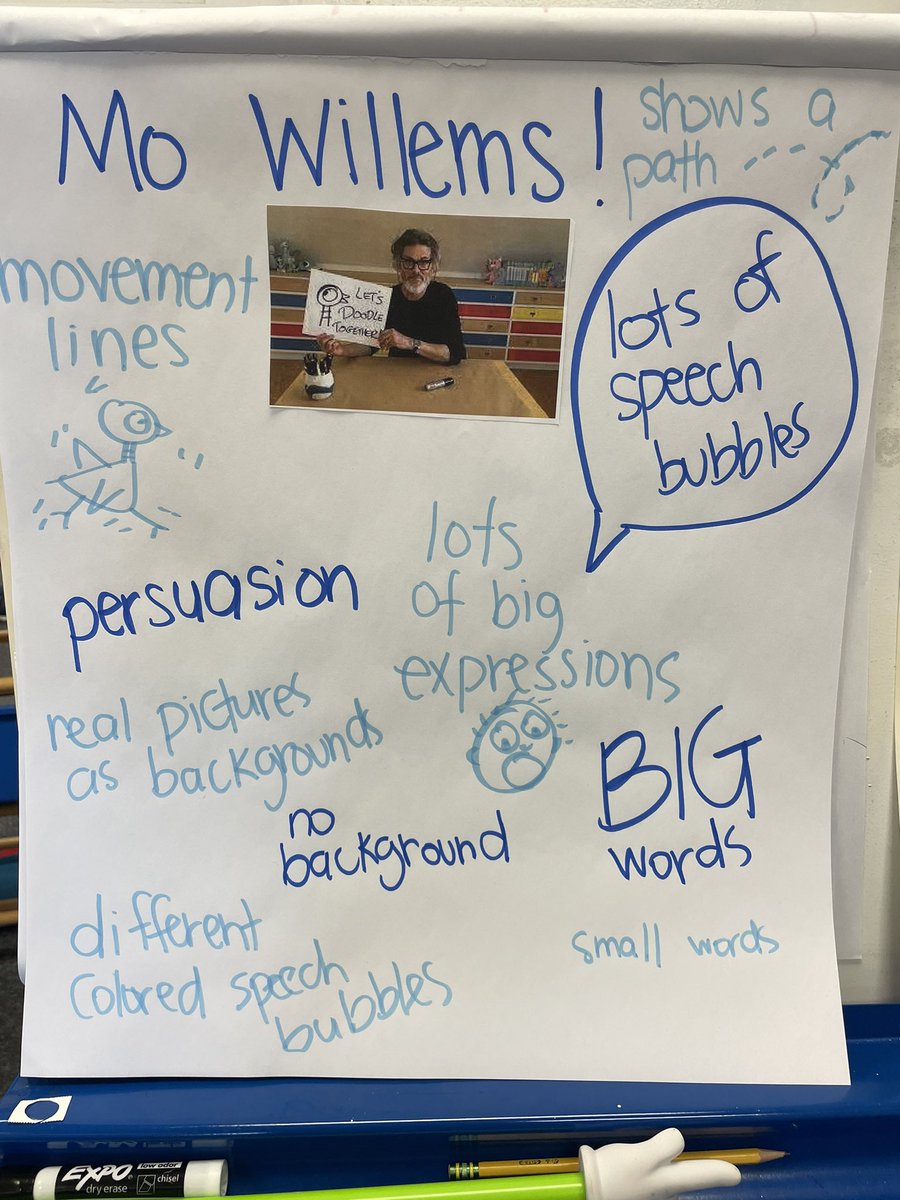 Mo Willems!
shows a
path
LET'S
DOODLE
TOGETHER!
movement
lines
lots of
speech
bubbles
persuasion
lots
of big
expressions
real pictures
as backgrounds
BIG
words
no
background
different
colored speech
bubbles
small words
EXPO
low odor
dry erase
chisel